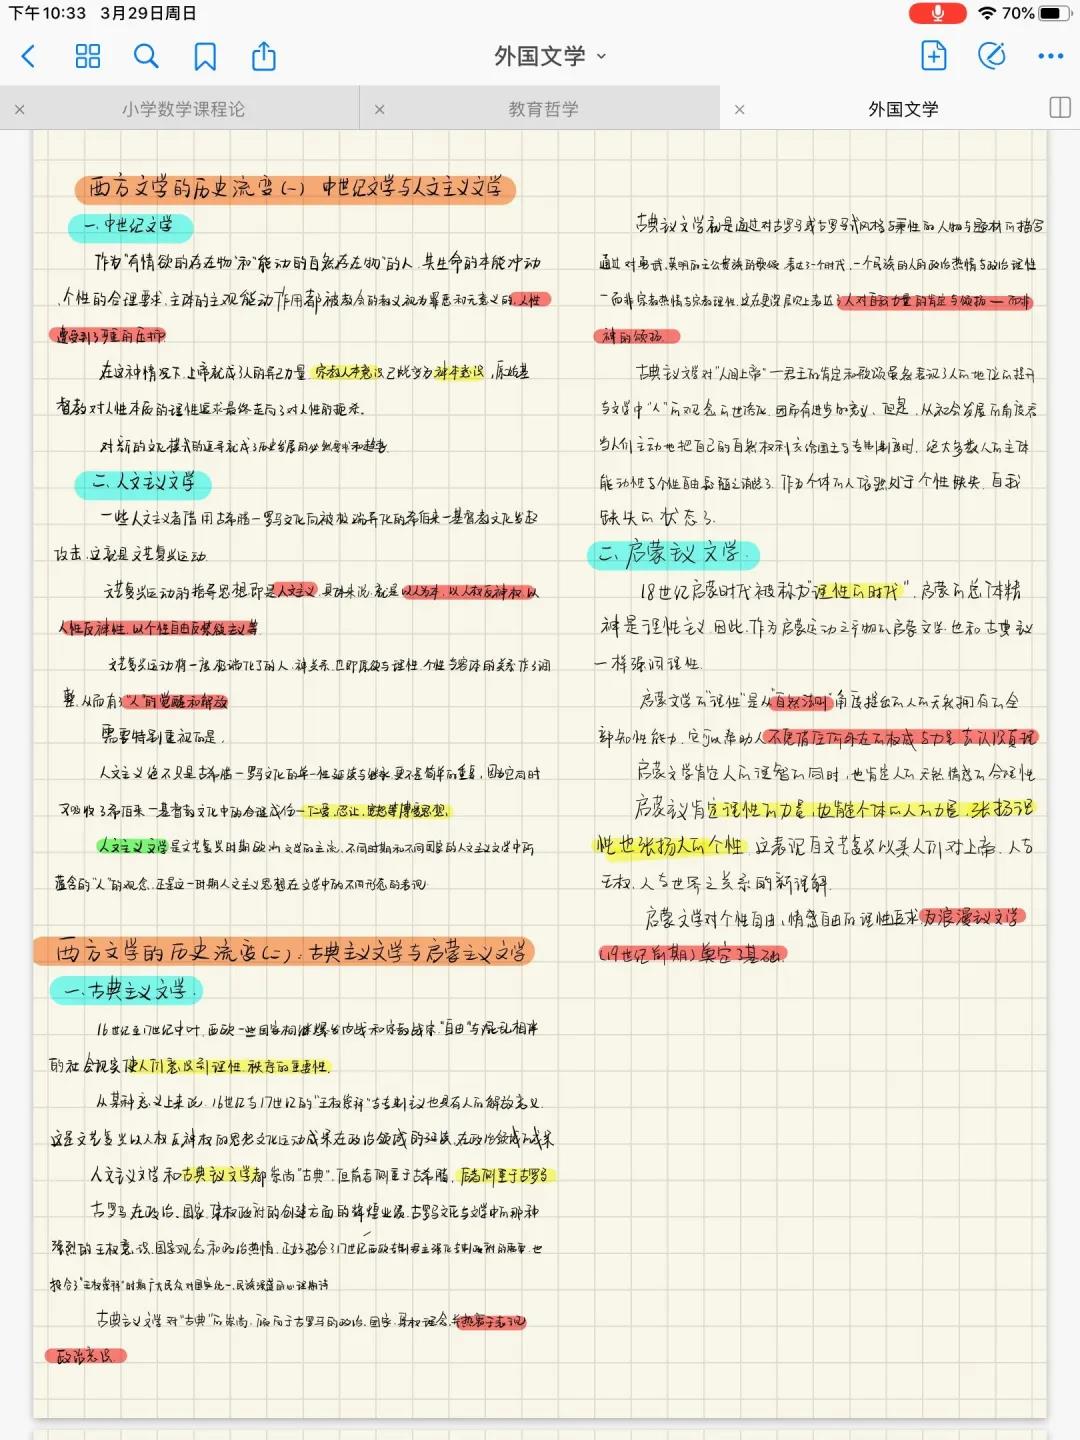 下午10:33 3月29日周日
70%
外国文学
小学数学课程论
教育哲学
外国文学
西方文学的历史流变(一) 中世纪文学与人文主义文学
一.中世纪文学
作为"有情欲的存在物"和"能动的自然存在物"的人,其生命的本能冲动
、个性的合理要求、主体的主观能动作用都被教会的教义视为罪恶和无意义的,人性
遭受到了严重的压抑
在这种情况下,上帝就成了人的异己力量,宗教人本意识已蜕变为神本意识,原始基
督教对人性本质的理性追求最终走向了对人性的扼杀。
对新的文化模式的追寻就成了历史发展的必然要求和趋势
二、人文主义文学
一些人文主义者借用古希腊-罗马文化向被极端异化的希伯来-基督教文化发起
攻击,这就是文艺复兴运动.
文艺复兴运动的指导思想即是人文主义,具体来说,就是以人为本,以人权反神权,以
人性反神性,以个性自由反禁欲主义等
文艺复兴运动将一度极端化了的人、神关系,也即原欲与理性、个性与群体的关系作了调
整,从而有了"人"的觉醒和解放
需要特别重视的是,
人文主义绝不只是古希腊-罗马文化的单一性延续与继承,更不是简单的重复,因为它同时
又吸收了希伯来-基督教文化中的合理成份—仁爱、忍让、宽恕等博爱思想,
人文主义文学是文艺复兴时期欧洲文学的主流,不同时期和不同国家的人文主义文学中所
蕴含的"人"的观念,正是这一时期人文主义思想在文学中的不同形态的表现
西方文学的历史流变(二):古典主义文学与启蒙主义文学
一.古典主义文学.
16世纪至17世纪中叶,西欧一些国家相继爆发内战和宗教战争,"自由"与混乱相伴
的社会现实使人们意识到理性、秩序的重要性.
从某种意义上来说,16世纪与17世纪的"王权崇拜"与专制主义也具有人的解放意义.
这是文艺复兴以人权反神权的思想文化运动成果在政治领域的延续,在政治领域的成果
人文主义文学和古典主义文学都崇尚"古典",但前者侧重于古希腊,后者侧重于古罗马
古罗马在政治、国家、集权政府的创建方面的辉煌业展,古罗马文化与文学中的那种
强烈的王权意识、国家观念和政治热情,正好投合了17世纪西欧专制君主强化专制政府的需要,也
投合了"王权崇拜"时期广大民众对国家统一、民族强盛的心理期待
古典主义文学对"古典"的崇尚,源于古罗马的政治、国家、集权理念,并热衷于表现
政治意识.
古典主义文学就是通过对古罗马或古罗马式风格与秉性的人物与题材的描写
通过对勇武、英明的王公贵族的歌颂,表达了一个时代、一个民族的人的政治热情与政治理性
—而非宗教热情与宗教理性,这在更深层次上表达了人对自我力量的肯定与颂扬——而非
神的颂扬
古典主义文学对"人间上帝"—君主的肯定和歌颂,虽然表征了人的地位的提升
与文学中"人"的观念的世俗化,因而有进步的意义,但是,从社会发展的角度看
当人们主动地把自己的自然权利交给国王与专制制度时,绝大多数人的主体
能动性与个性自由也随之消失了,作为个体的人依然处于个性缺失、自我
缺失的状态了.
二、启蒙主义文学.
18世纪启蒙时代被称为"理性的时代",启蒙的总体精
神是理性主义.因此,作为启蒙运动之产物的启蒙文学,也和古典主义
一样强调理性.
启蒙文学的"理性"是从"自然法则"角度提出的人的天然拥有的全
部知性能力,它可以帮助人不凭借任何外在的权威与力量去认识真理
启蒙文学肯定人的理智的同时,也肯定人的天然情感的合理性
启蒙主义肯定理性的力量,也肯定个体的人的力量,张扬理
性也张扬人的个性,这表现自文艺复兴以来人们对上帝、人与
王权、人与世界之关系的新理解.
启蒙文学对个性自由、情感自由的理性追求,为浪漫主义文学
(19世纪前期)奠定了基础.